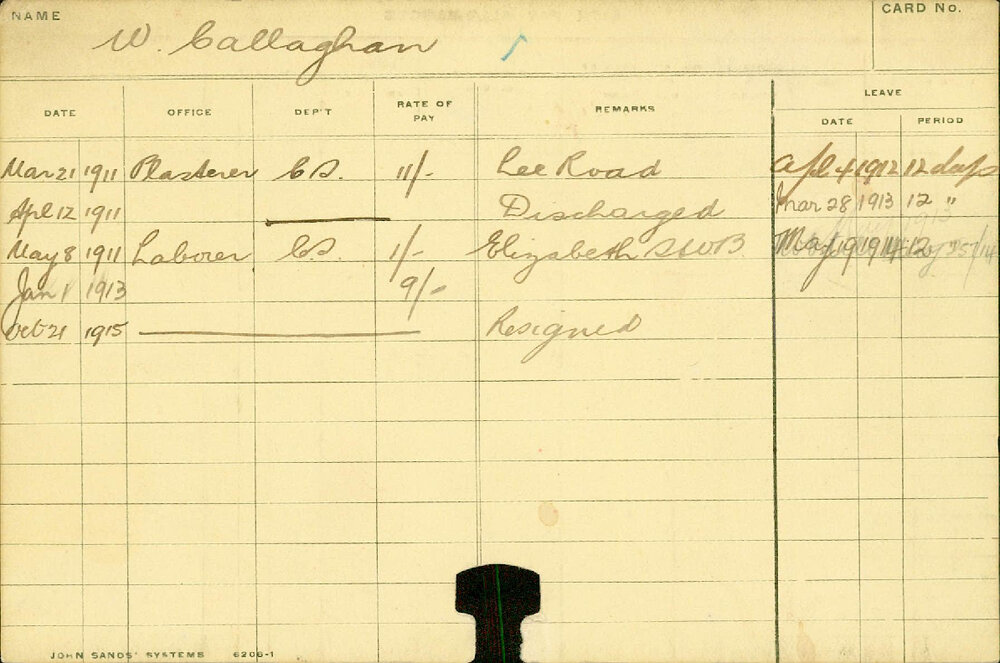 NAME W. Callaghan CARD No.
LEAVE
DATE OFFICE DEP'T RATE OF PAY REMARKS DATE PERIOD
Mar 21 1911 Plasterer C.S. 11/- Lee Road Apl 4 1912 12 days
Apl 12 1911 Discharged Mar 28 1913 12 "
May 8 1911 Laborer C.S. 1/- Elizabeth May 19 1914 12 "
Jan 1 1913 9/-
Oct 21 1915 Resigned
JOHN SANDS' SYSTEMS 6206-1